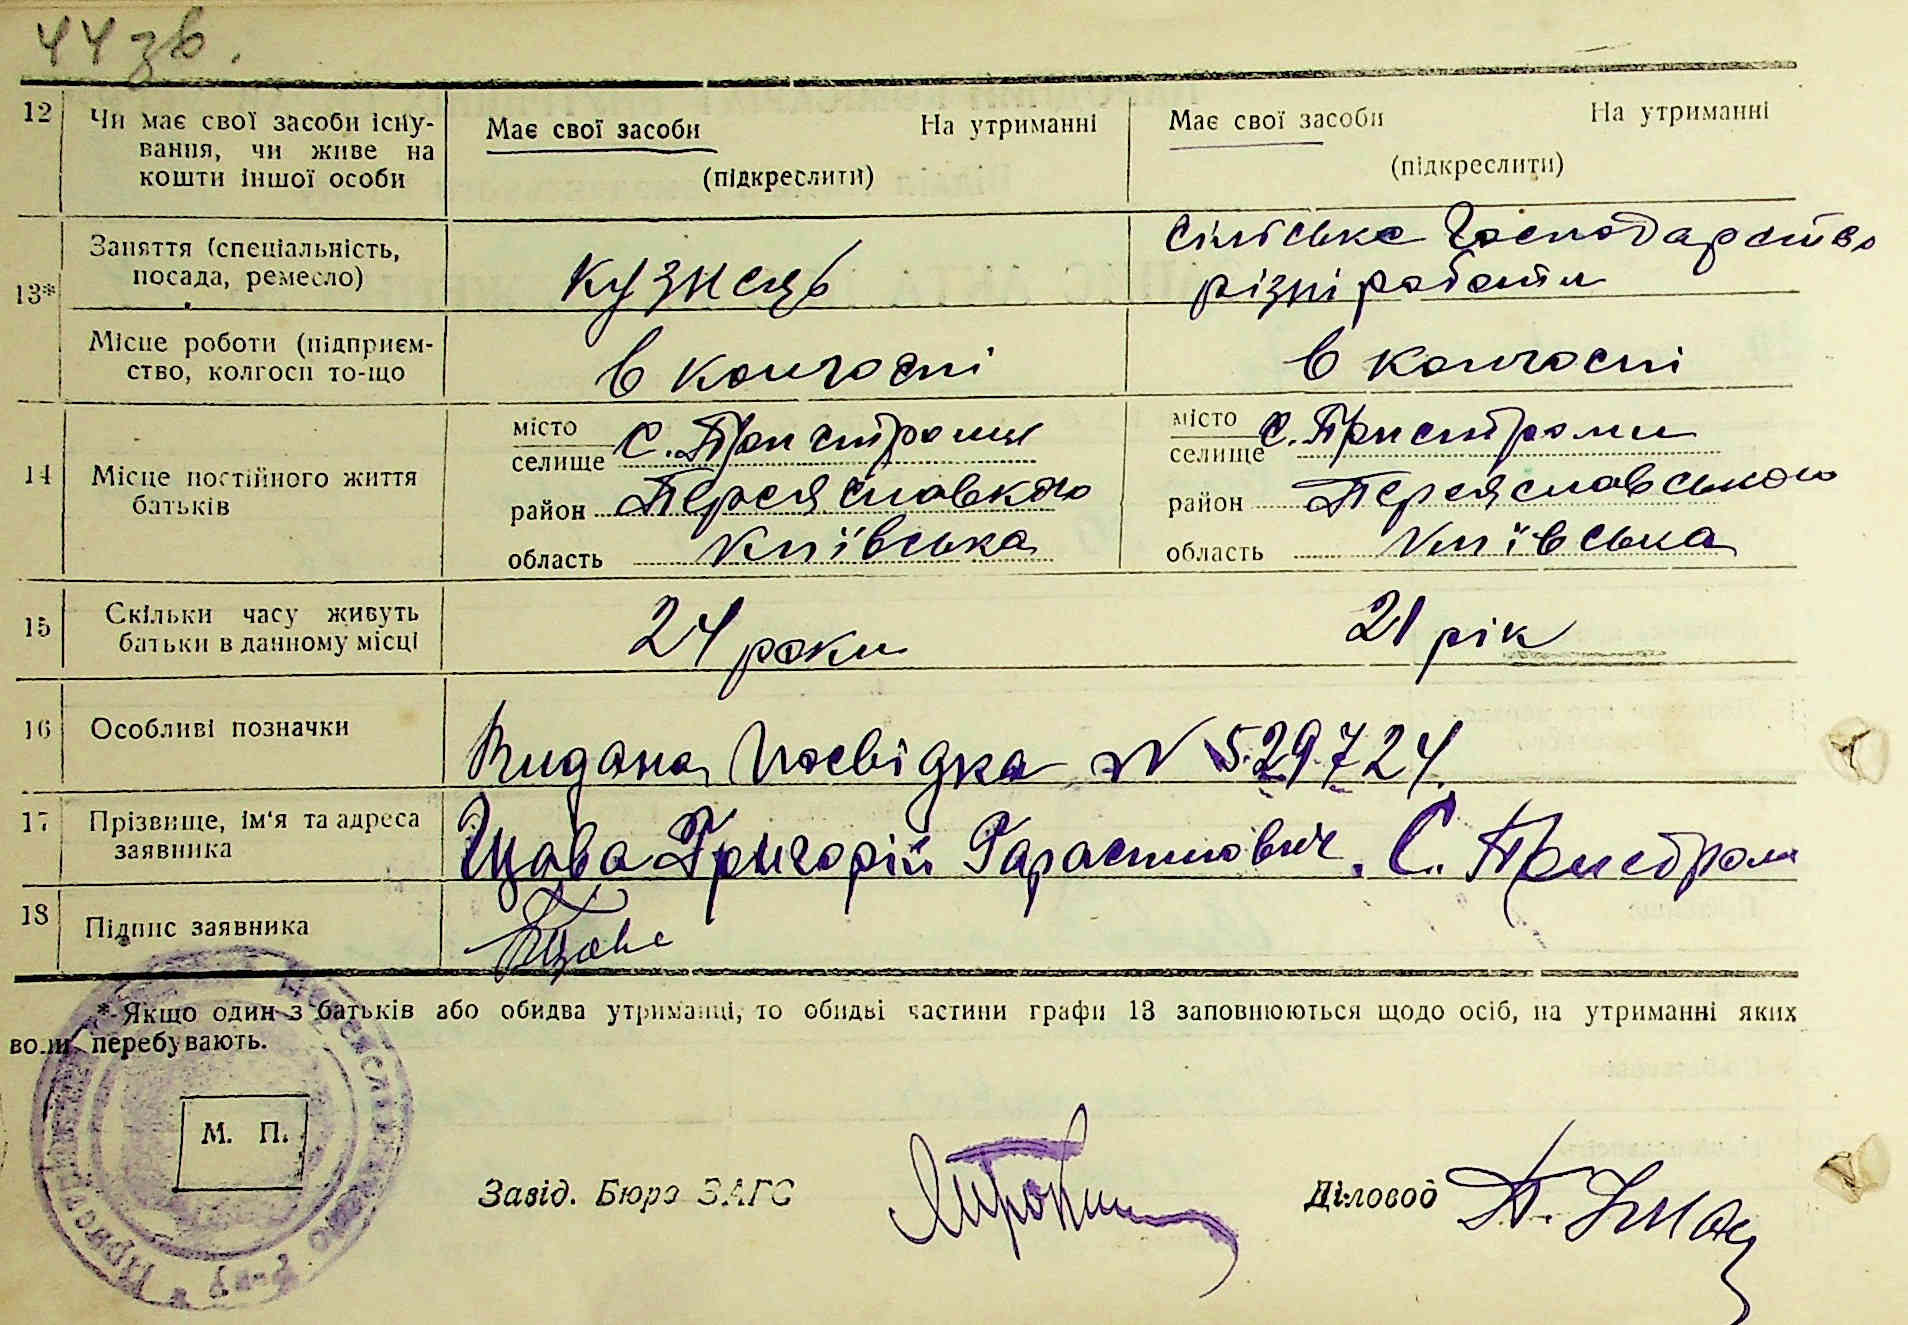 44 зв.
12 Чи має свої засоби існу-
вання, чи живе на
кошти іншої особи
Має свої засоби На утриманні
(підкреслити)
Має свої засоби На утриманні
(підкреслити)
13* Заняття (спеціальність,
посада, ремесло)
кузнець
Сільське господарство
різні роботи
Місце роботи (підприєм-
ство, колгосп то-що
в колгоспі
в колгоспі
14 Місце постійного життя
батьків
місто
селище с. Пристроми
район Переяславкого
область Київська
місто
селище с. Пристроми
район Переяславського
область Київська
15 Скільки часу живуть
батьки в данному місці
24 роки
21 рік
16 Особливі позначки
Видана Посвідка № 529724.
17 Прізвище, ім'я та адреса
заявника
Григорій С. Пристроми
18 Підпис заявника
*-Якщо один з батьків або обидва утриманці, то обидві частини графи 13 заповнюються щодо осіб, на утриманні яких
вони перебувають.
М. П.
Завід. Бюро ЗАГС
Діловод